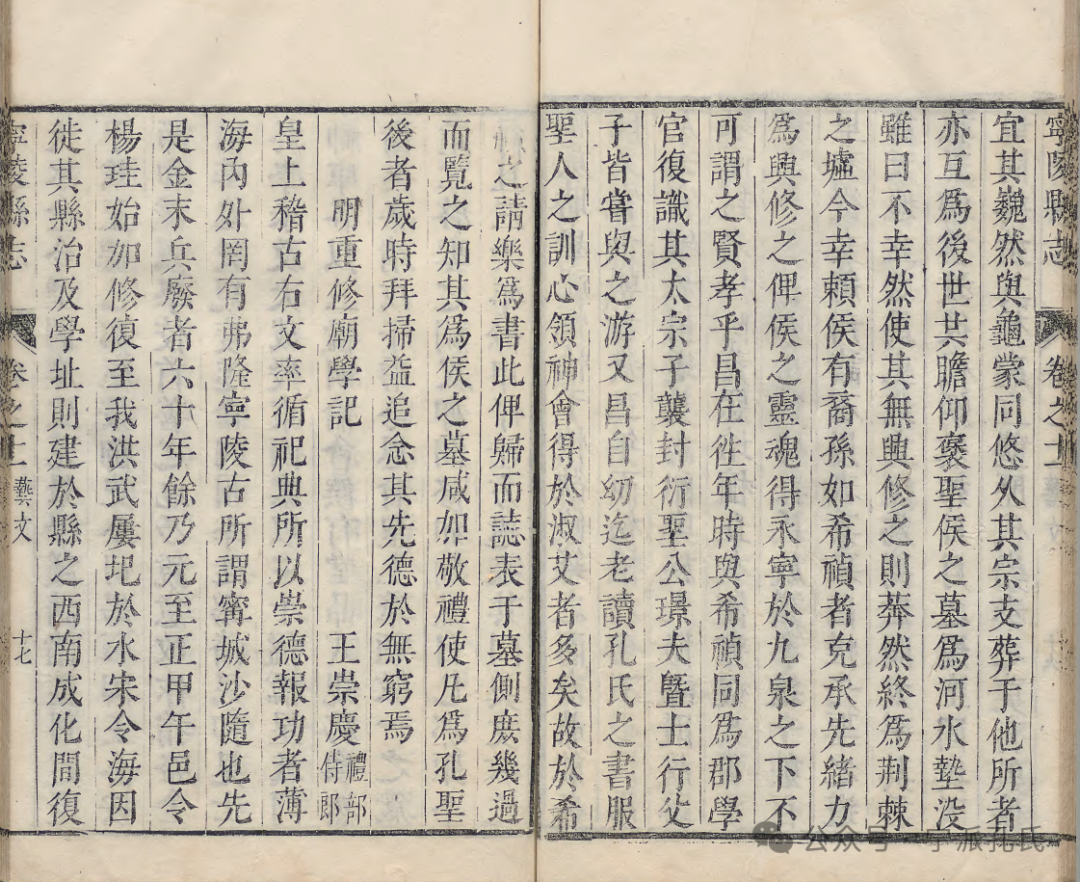 寧陵縣志
卷之十一
宜其巍然與龜蒙同悠久其宗支葬于他所者
亦互爲後世共瞻仰褒聖侯之墓爲河水墊没
雖曰不幸然使其無興修之則莽然終爲荆棘
之墟今幸頼侯有裔孫如希禎者克承先緒力
爲興修之俾侯之靈魂得永寧於九泉之下不
可謂之賢孝乎昌在徃年時與希禎同爲郡學
官復識其太宗子襲封衍聖公璟夫曁士行父
子皆嘗與之游又昌自幼迄老讀孔氏之書服
聖人之訓心領神會得於淑艾者多矣故於希
之請樂爲書此俾歸而誌表于墓側庶幾過
而覽之知其爲侯之墓咸加敬禮使凡爲孔聖
後者歲時拜掃益追念其先德於無窮焉
明重修廟學記
王崇慶禮部侍郎
皇上稽古右文率循祀典所以崇德報功者薄
海內外罔有弗隆寧陵古所謂甯城沙隨也先
是金末兵廢者六十年餘乃元至正甲午邑令
楊珪始加修復至我洪武屢圮於水宋令海因
徙其縣治及學址則建於縣之西南成化間復
寧陵縣志
卷之十一
藝文
十七
公众号